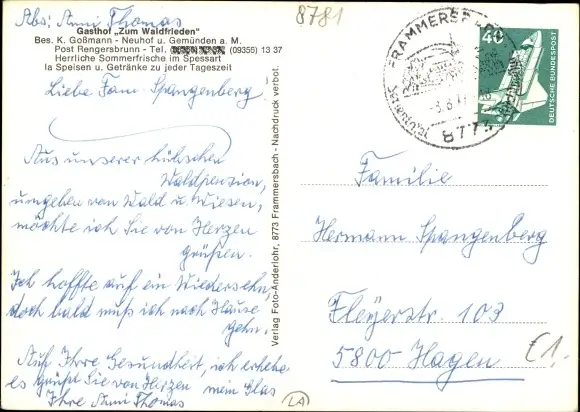 Abs: Anni Thomas
8781
Gasthof "Zum Waldfrieden"
Bes. K. Goßmann - Neuhof u. Gemünden a. M.
Post Rengersbrunn - Tel. (09355) 13 37
Herrliche Sommerfrische im Spessart
Ia Speisen u. Getränke zu jeder Tageszeit
Liebe Fam. Spangenberg
Aus unserer hübschen
Waldpension,
umgeben von Wald u. Wiesen,
möchte ich Sie von Herzen
grüßen.
Ich hoffte auf ein Wiedersehn,
doch bald muß ich nach Hause
gehn.
Auf Ihre Gesundheit, ich erhebe
es grüßt Sie von Herzen mein Glas
Ihre Anni Thomas
LA
Verlag Foto-Anderlohr, 8773 Frammersbach - Nachdruck verbot.
FRAMMERSBACH
8773
40
DEUTSCHE BUNDESPOST
Familie
Hermann Spangenberg
Fleyerstr. 103
5800 Hagen
€1.-